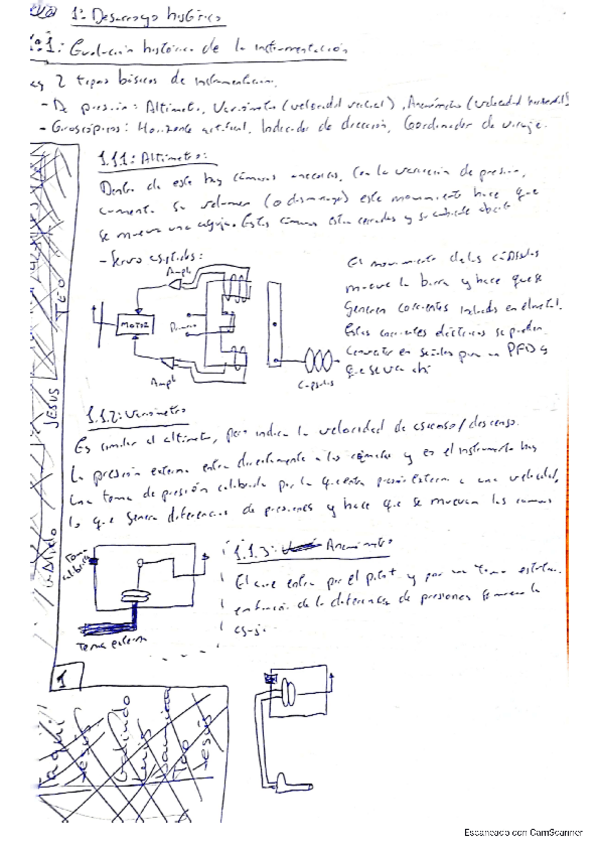 1: Desarrollo histórico
1: Evolución histórica de la instrumentación
2 tipos básicos de instrumentación.
- De presión: Altímetro, Variómetro (velocidad vertical), Anemómetro (velocidad horizontal)
- Giroscópicos: Horizonte artificial, Indicador de dirección, Coordinador de viraje.
1.1.1: Altímetro:
Dentro de este hay cámaras aneroides. Con la variación de presión,
aumenta su volumen (o disminuye) este movimiento hace que
se mueva una aguja. Estas cámaras están cerradas y su cubierta abierta
- Servo asistidos:
Ampl
MOTOR
Ampl
Cápsulas
El movimiento de las cápsulas
mueve la barra y hace que se
generen corrientes inducidas en el metal.
Estas corrientes eléctricas se pueden
convertir en señales para un PFD y
que se vea ahí
1.1.2: Variómetro
Es similar al altímetro, pero indica la velocidad de ascenso/descenso.
La presión externa entra directamente a las cámaras y en el instrumento hay
una toma de presión calibrada por la que entra presión externa a una velocidad,
lo que genera diferencias de presiones y hace que se muevan las cámaras
Toma calibrada
Toma externa
1.1.3: Anemómetro
El aire entra por el pitot y por una toma estática.
en función de la diferencia de presiones se mueve la
aguja.
TEO
JESUS
Indalecio
1
Jesús
Galindo
Luis
Teo
Jesús
Escaneado con CamScanner